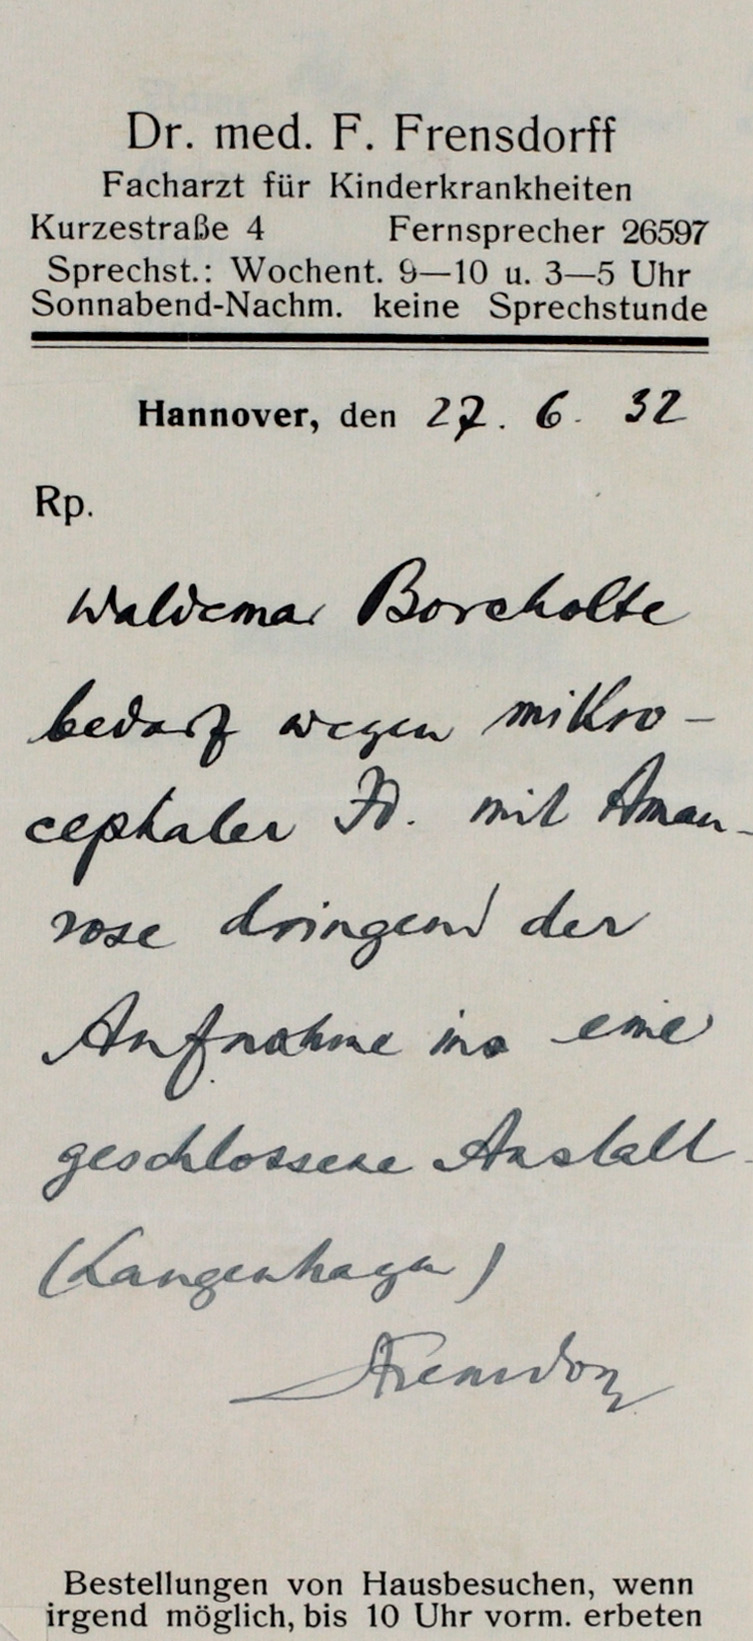 Dr. med. F. Frensdorff
Facharzt für Kinderkrankheiten
Kurzestraße 4 Fernsprecher 26597
Sprechst.: Wochent. 9—10 u. 3—5 Uhr
Sonnabend-Nachm. keine Sprechstunde
Hannover, den 27. 6. 32
Rp.
Waldemar Borcholte
bedarf wegen mikro-
cephaler Id. mit Amau-
rose dringend der
Aufnahme in eine
geschlossene Anstalt
(Langenhagen)
Frensdorff
Bestellungen von Hausbesuchen, wenn
irgend möglich, bis 10 Uhr vorm. erbeten